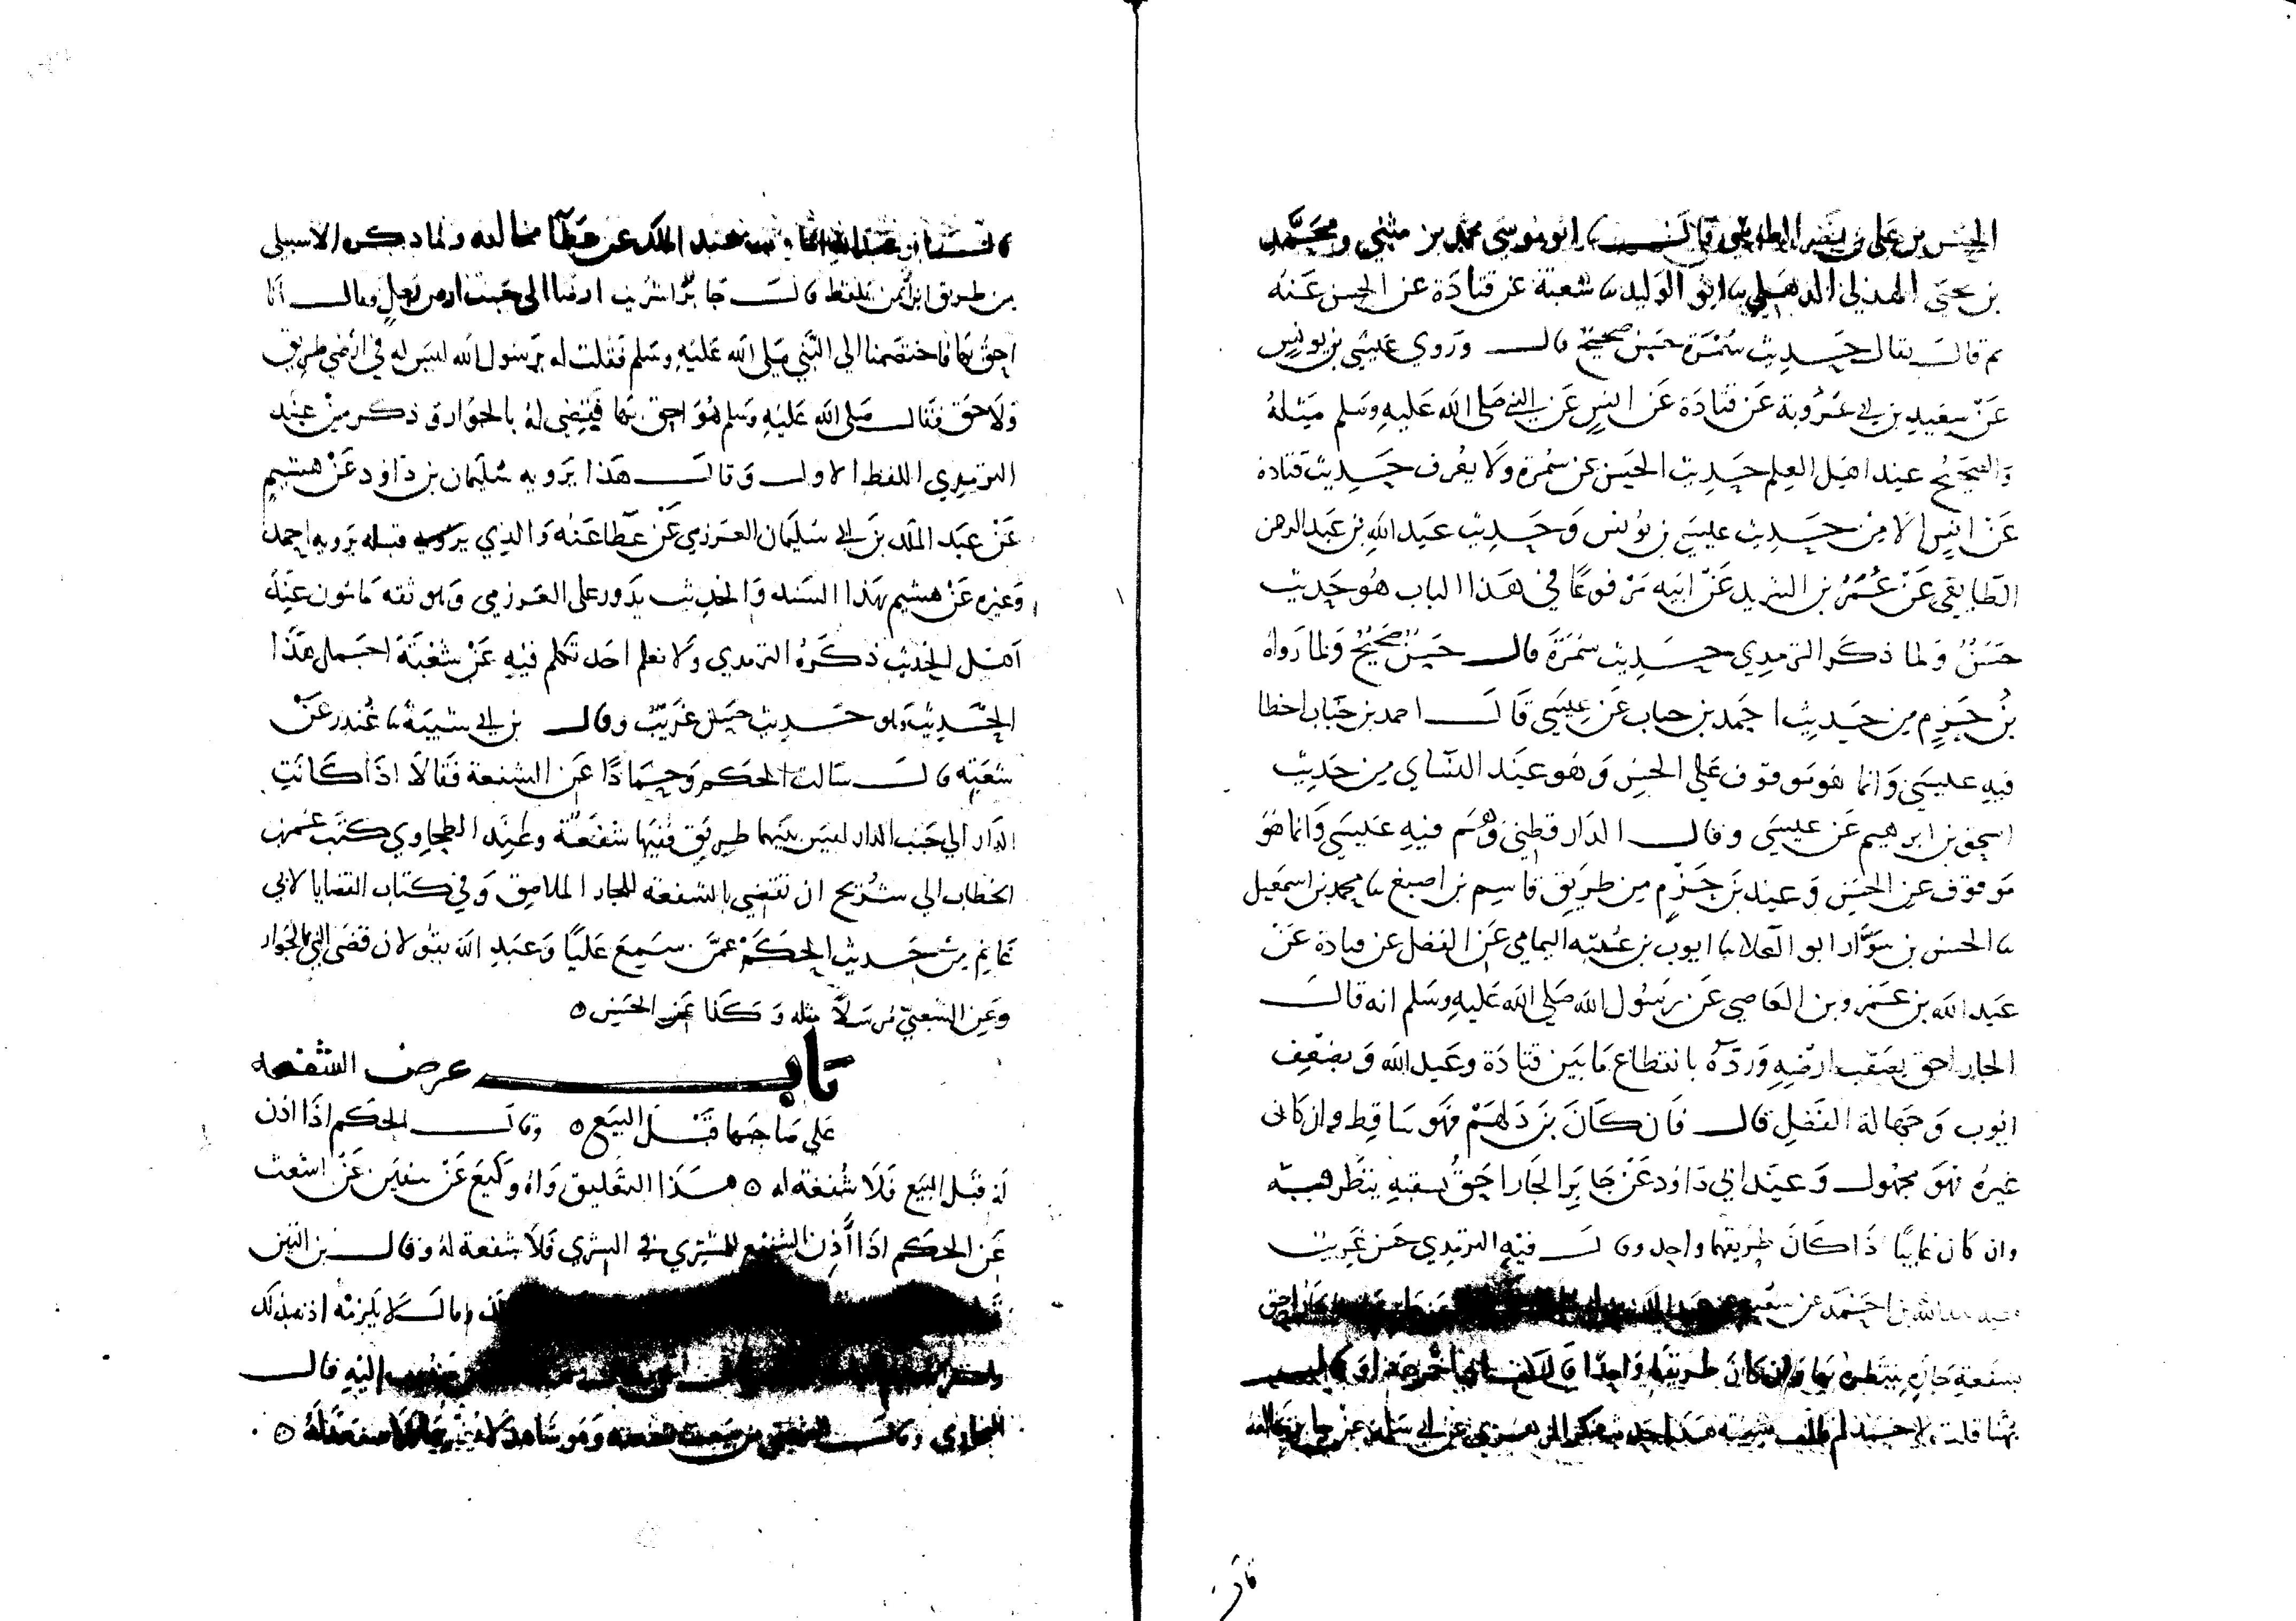 الحسن بن علي بن نصر الطوسي قال نا ابو موسى محمد بن مثنى ومحمد
بن يحيى الهذلي الدهلي نا ابو الوليد نا شعبة عن قتادة عن الحسن عنه
ثم قال يقال حديث سمرة حسن صحيح قال وروي عيسى بن يونس
عن سعيد بن ابي عروبة عن قتادة عن انس عن النبي صلى الله عليه وسلم مثله
والصحيح عند اهل العلم حديث الحسن عن سمرة ولا يعرف حديث قتادة
عن انس الا من حديث عيسى بن يونس وحديث عبد الله بن عبد الرحمن
الطايفي عن عمرو بن الشريد عن ابيه مرفوعا في هذا الباب هو حديث
حسن ولما ذكر الترمدي حديث سمرة قال حسن صحيح ولما رواه
بن حزم من حديث احمد بن حباب عن عيسى قال احمد بن حباب اخطا
فيه عيسى وانما هو موقوف علي الحسن وهو عند النساي من حديث
اسحق بن ابرهيم عن عيسى وقال الدارقطني وهم فيه عيسى وانما هو
موقوف عن الحسن وعند بن حزم من طريق قاسم بن اصبغ نا محمد بن اسمعيل
نا الحسن بن سوار ابو العلا نا ايوب بن عتبه اليمامي عن الفضل عن قتادة عن
عبد الله بن عمرو بن العاصي عن رسول الله صلي الله عليه وسلم انه قال
الجار احق بصقب ارضه ورده بانقطاع ما بين قتادة وعبد الله وبضعف
ايوب وجهالة الفضل قال فان كان بن دلهم فهو ساقط وان كان
غيره فهو مجهول وعند ابي داود عن جابر الجار احق بسقبه ينتظر به
وان كان غايبا اذا كان طريقهما واحد وقال فيه الترمدي حسن غريب
عبد الله بن احمد عن شعبة احق
بشفعة جاره ينتظره بها وان كان طريقهما واحدا
بهذا قلت لاحمد
قال عبد الملك عن عطا مخالفه ولما ذكره الاسبيلي
من طريق ابن ايمن بلفظ قال جابر اشتريت ارضا الى جنب ارض رجل وقال انا
احق بها فاختصمنا الي النبي صلى الله عليه وسلم فقلت له يرسول الله ليس له في ارضي طريق
ولا حق فقال صلى الله عليه وسلم هو احق بها فقضى له بالجوار وذكر من عند
الترمدي اللفظ الاول وقال هذا يرويه سليمان بن داود عن هشيم
عن عبد الملك بن ابي سليمان العرزمي عن عطا عنه والذي يرويه قبله يرويه احمد
وغيره عن هشيم بهذا السند والحديث يدور على العرزمي وهو ثقه مامون عند
اهل الحديث ذكره الترمدي ولا نعلم احد تكلم فيه غير شعبة اجل هذا
الحديث وهو حديث حسن غريب وقال بن ابي شيبة نا غندر عن
شعبه قال سالت الحكم وحمادا عن الشفعة فقالا اذا كانت
الدار الي جنب الدار ليس بينهما طريق ففيها شفعة وعند الطحاوي كتب عمر بن
الخطاب الي شريح ان تقضي بالشفعه للجار الملاصق وفي كتاب القضايا لابي
غانم من حديث الحكم عمن سمع عليا وعبد الله يقولان قضى النبي بالجوار
وعن الشعبي مرسلا مثله وكذا عن الحسن ٥
باب عرض الشفعه
علي صاحبها قبل البيع ٥ وقال الحكم اذا اذن
له قبل البيع فلا شفعة له ٥ هذا التعليق رواه وكيع عن سفين عن اشعث
عن الحكم اذا اذن الشفيع للمشتري في الشرى فلا شفعة له وقال بن التين
وقال لا يلزمه اذنه بذلك
اليه قال
البخاري وقال الشعبي من بيعت شفعته وهو شاهد لا يغيرها فلا شفعة له ٥